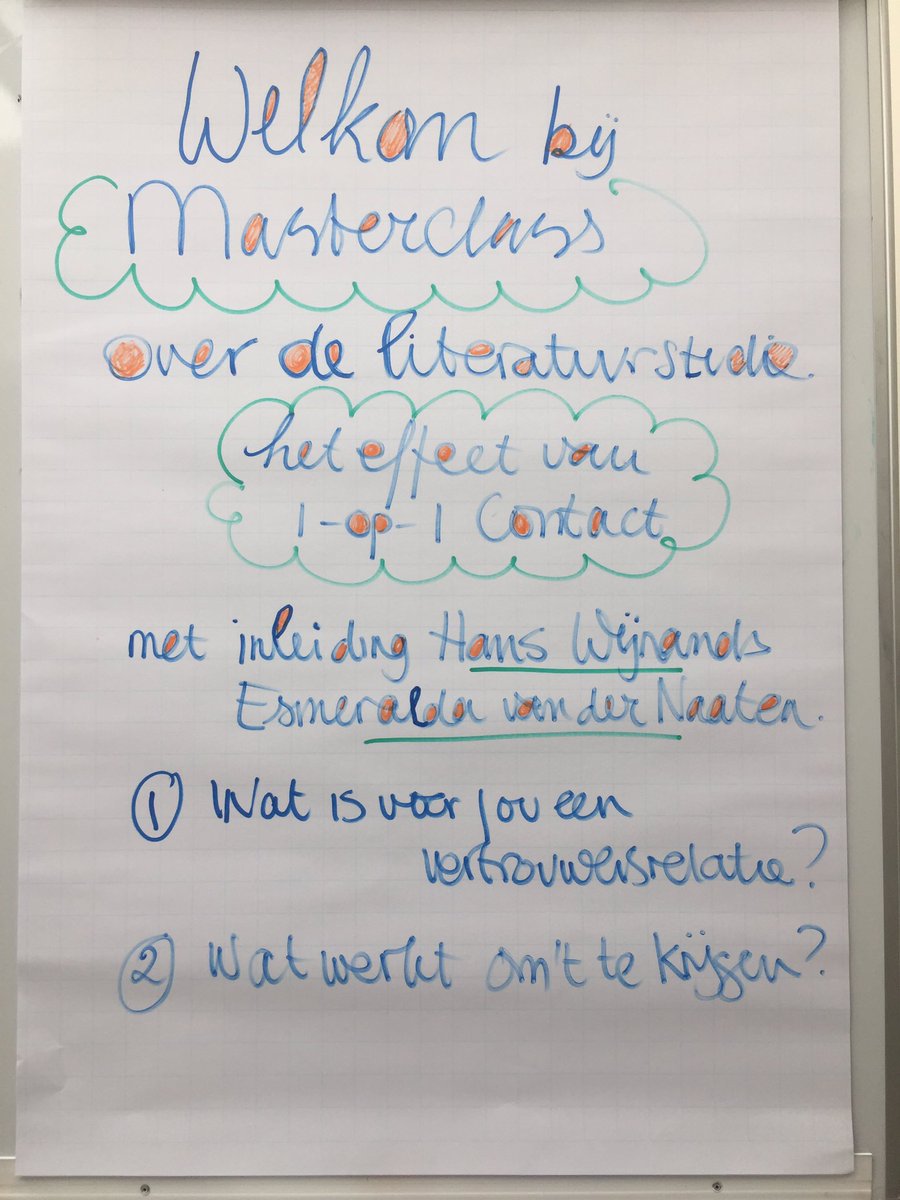 Welkom bij
Masterclass
over de literatuurstudie.
het effect van
1-op-1 Contact
met inleiding Hans Wijnands
Esmeralda van der Naaten.
① Wat is voor jou een
vertrouwensrelatie?
② Wat werkt om't te krijgen?